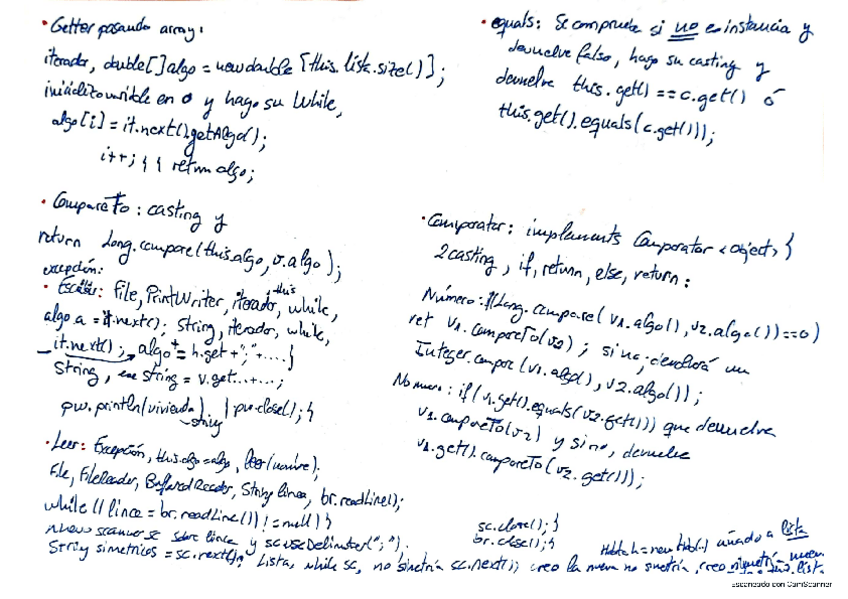 • Getter pasando array:
iterador, double[] algo = new double [this.lista.size()];
inicializo variable en 0 y hago su While,
algo[i] = it.next().getAlgo();
i++; } } return algo;
• equals: Se comprueba si no es instancia y
devuelve falso, hago su casting y
devuelve this.get() == c.get() ó
this.get().equals(c.get()));
• CompareTo: casting y
return Long.compare(this.algo, v.algo);
excepción:
• Escribir: File, PrintWriter, iterador, this while,
algo a = it.next(); String, iterador, while,
it.next(); algo += h.get + ";" + ....}
String, string = v.get...+...;
pw.println(vivienda) } pw.close(); }
string
• Comparator: implements Comparator <Object> {
2 casting, if, return, else, return:
Número: if(Long.compare(v1.algo(), v2.algo()) == 0)
ret v1.compareTo(v2); si no, devolverá un
Integer.compare(v1.algo(), v2.algo());
No numero: if(v1.get().equals(v2.get())) que devuelva
v1.compareTo(v2) y si no, devuelve
v1.get().compareTo(v2.get()));
• Leer: Excepción, this.algo = algo, leer(nombre);
File, FileReader, BufferedReader, String linea, br.readLine();
while ((linea = br.readLine()) != null) {
nuevo scanner sc sobre linea y sc.useDelimiter(";");
String simetricos = sc.next(); Lista, while sc, no simetría sc.next(); creo la nueva no simetría, creo
sc.close(); }
br.close(); }
Hab h = new Hab() añado a lista
Escaneado con CamScanner